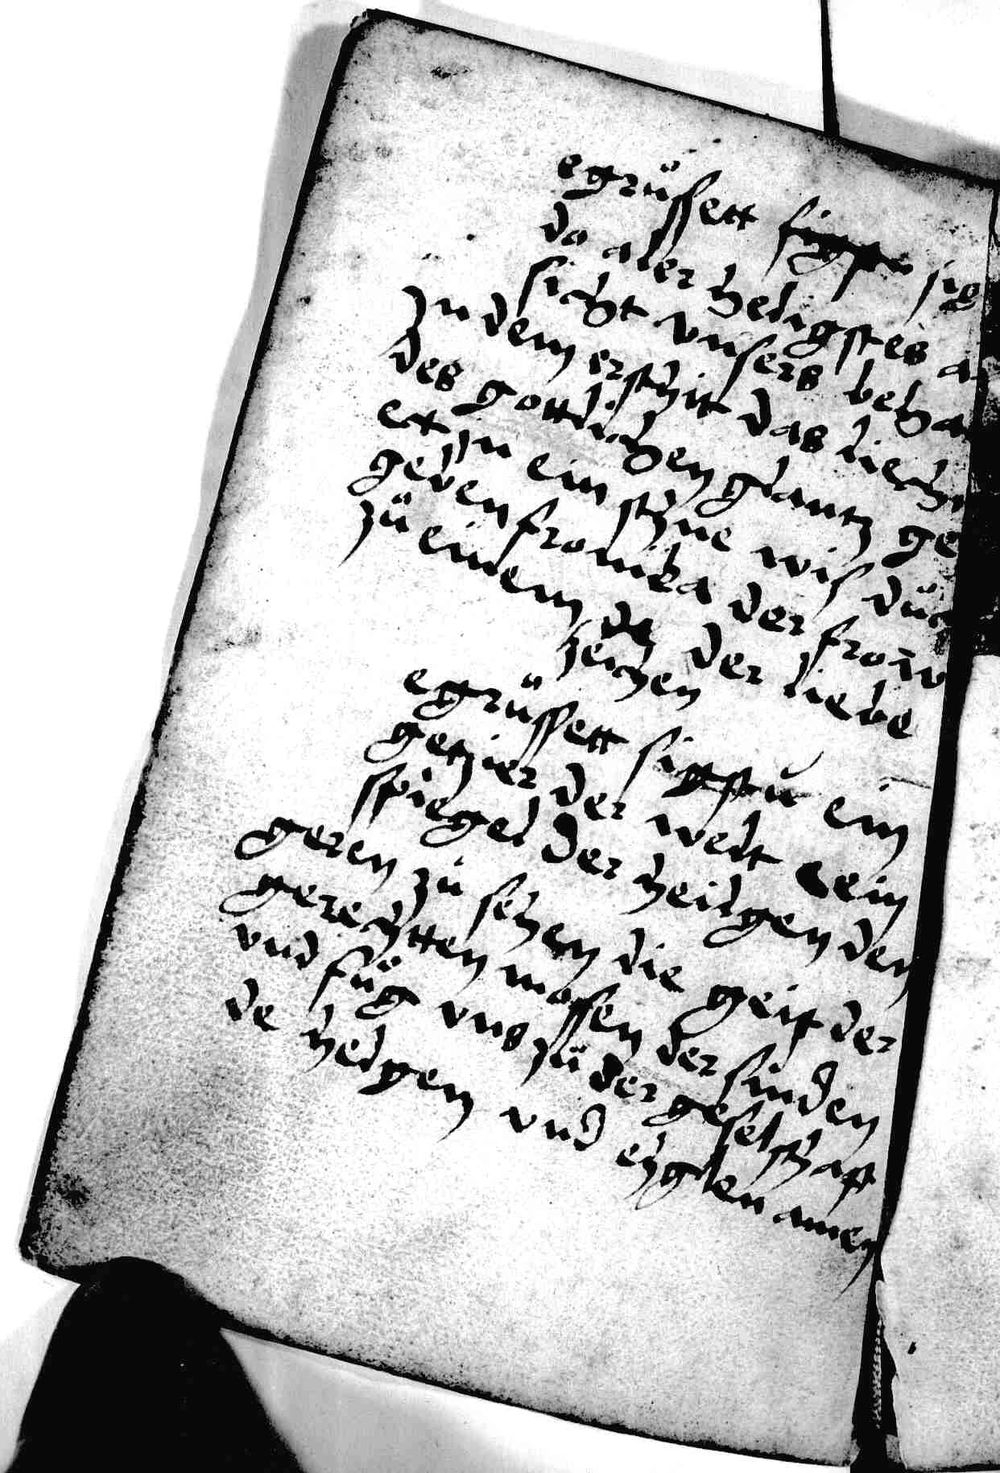 egrüssett sig
do aler heligstes a
sicht vnsers beha
In dem erschit das liecht
des gottlichen glantz ge
ett In ein schne wis düc
geben fronika der frow
zü einem der liebe
zeichen
egrüssett sigstu ein
getzier der welt ein
spiegel der heilgen den
geren zü sehen die geist der
gerechtten massen der sinden
vnd füg vns zü der geselschaft
de helgen vnd englen amen